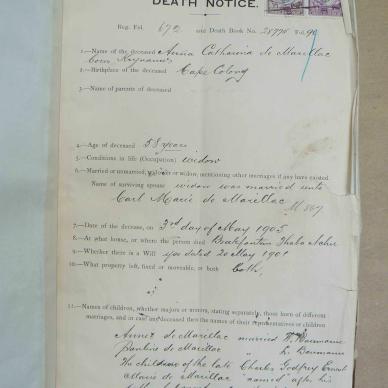 DEATH NOTICE.
Reg. Fol. 672 and Death Book No. 28776
1.—Name of the deceased Anna Catharina de Marillac
born
2.—Birthplace of the deceased Cape Colony
3.—Name of parents of deceased
4.—Age of deceased 58 years
5.—Conditions in life (Occupation) widow
6.—Married or unmarried, widower or widow, mentioning other marriages if any have existed.
Name of surviving spouse widow was married unto
Carl Marie de Marillac
7.—Date of the decease, on 3rd day of May 1905
8.—At what house, or where the person died Thaba Nchu
9.—Whether there is a Will yes dated 20 May 1901
10.—What property left, fixed or moveable, or both Both.
11.—Names of children, whether majors or minors, stating separately, those born of different
marriages, and in case any deceased then the names of their representatives or children
de Marillac married
Pauline de Marillac " Baumann
The children of the late Charles Godfrey Ernest
Marie de Marillac named after his